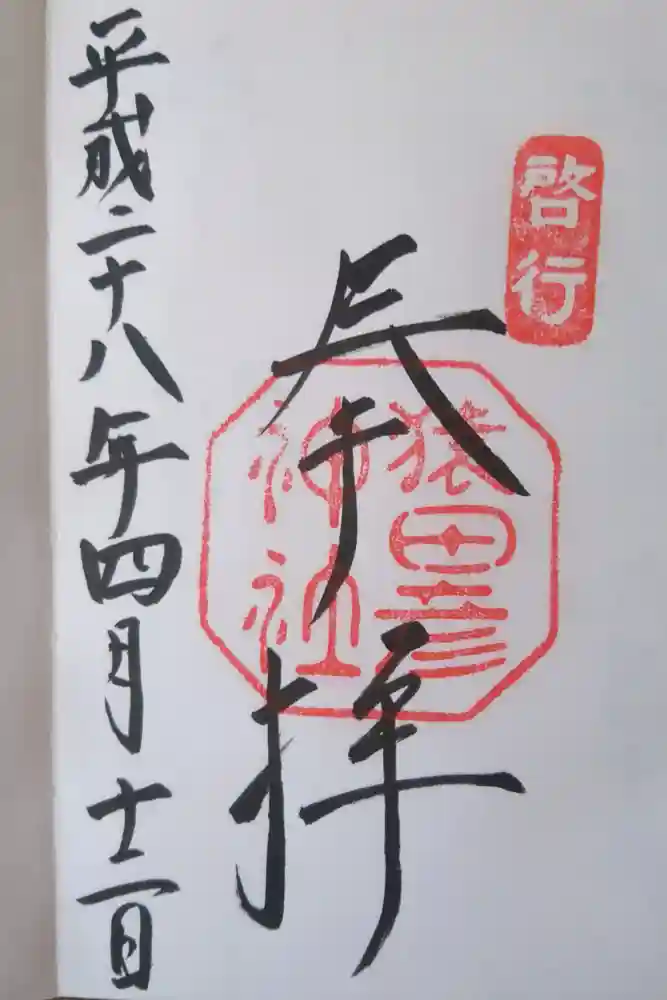 啓行
奉拝
猿田彦
神社
平成二十八年四月十二日